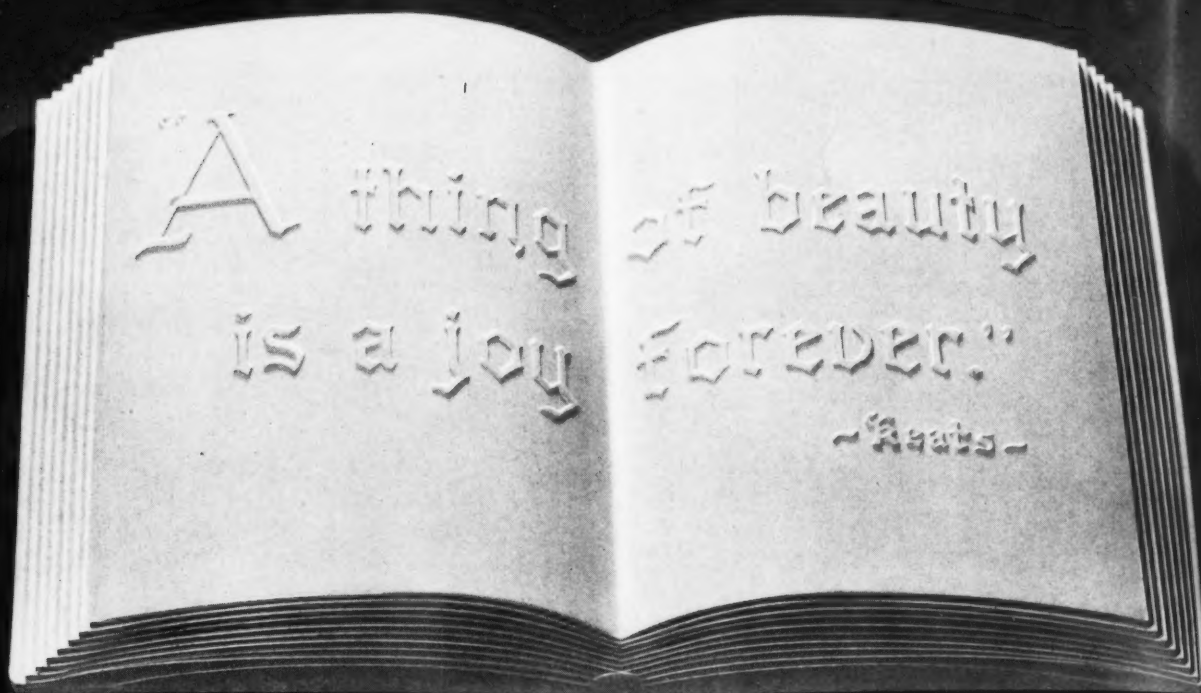 "A thing of beauty
is a joy forever."
~Keats~